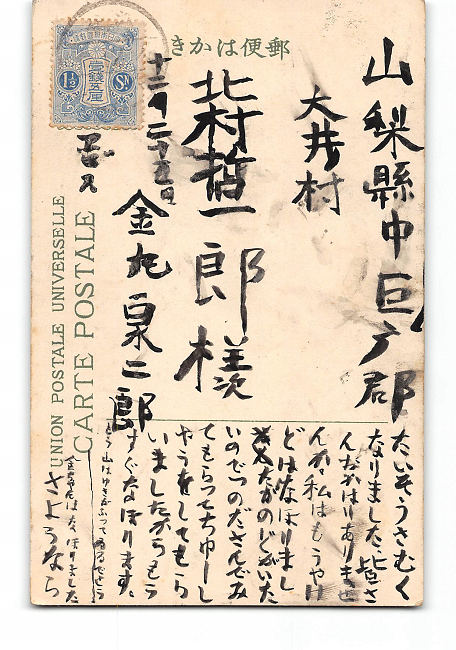 郵便はかき
大日本帝國郵便
壹錢五厘
1½ Sn
UNION POSTALE UNIVERSELLE
CARTE POSTALE
山梨縣中巨摩郡
大井村
北村哲一郎様
十二月二十五日
金丸泉二郎
たいそうさむく
なりました、皆さ
んおかはりありませ
んか私はもうやけ
どはなほりまし
たがのどがいた
いのでつのださんでみ
てもらってちゆーし
やうをしてもら
いましたからもう
すぐなほります。
さようなら